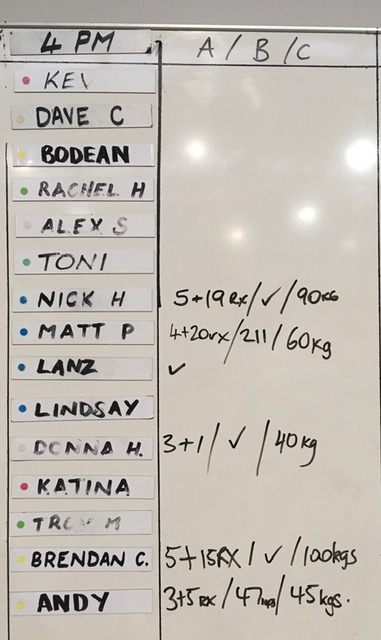 4 PM A / B / C
KEV
DAVE C
BODEAN
RACHEL H
ALEX S
TONI
NICK H 5+19 RX / ✓ / 90KG
MATT P 4+20rx / 211 / 60kg
LANZ ✓
LINDSAY
DONNA H. 3+1 / ✓ / 40kg
KATINA
TREV M
BRENDAN C. 5+15RX / ✓ / 100kgs
ANDY 3+5 RX / 47 / 45kgs.